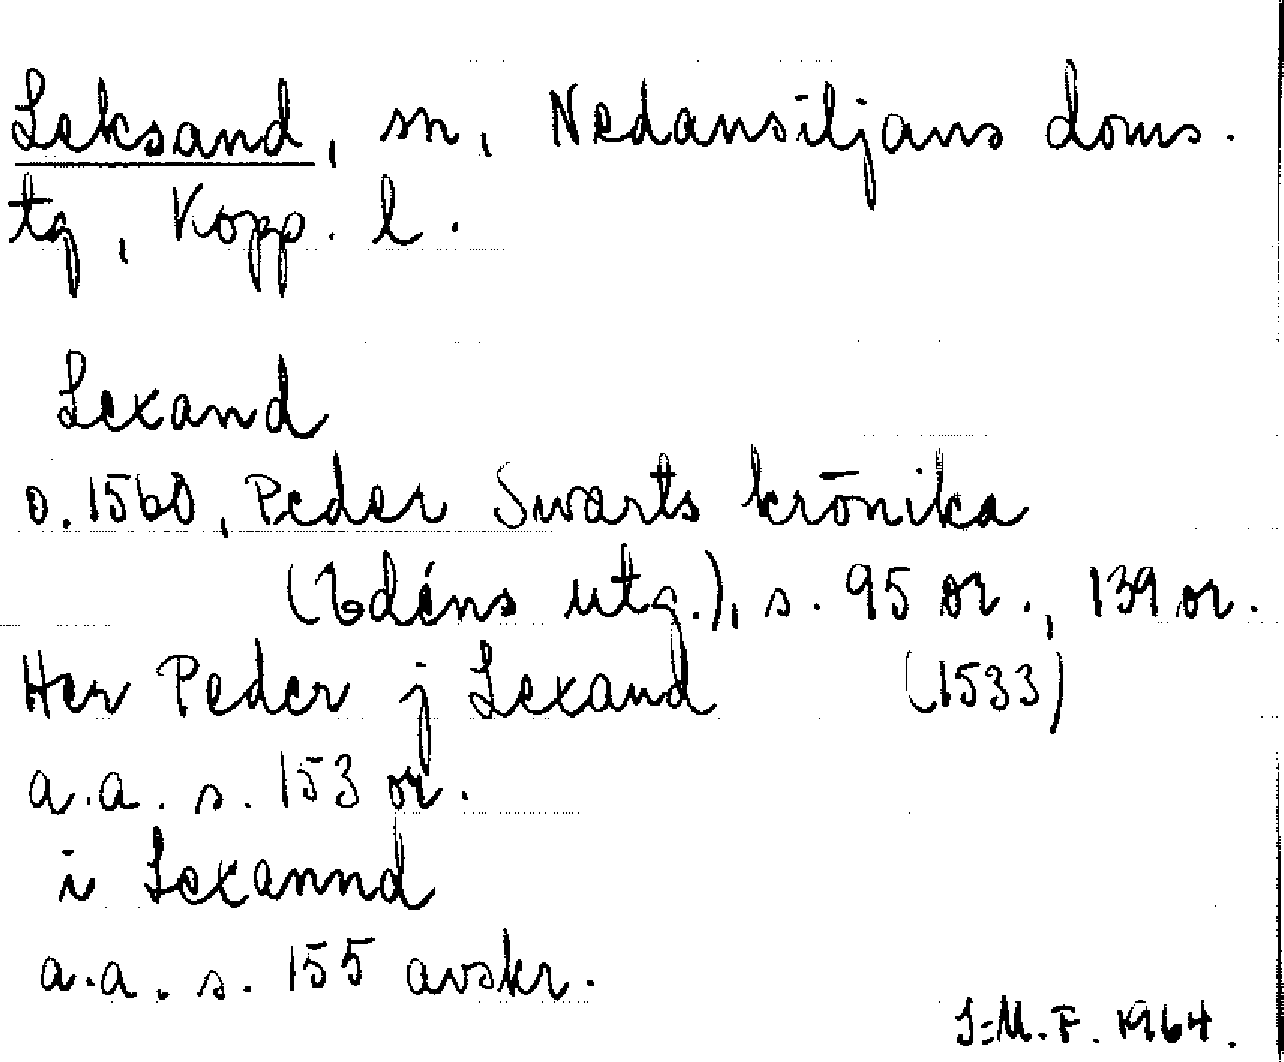 Leksand, sn, Nedansiljans doms.
tg, Kopp. l.
Lexand
o. 1560, Peder Swarts krönika
(Edéns utg.), s. 95 or., 139 or.
Her Peder j Lexand (1533)
a.a. s. 153 or.
i Lexannd
a.a. s. 155 avskr.
I-M. F. 1964.